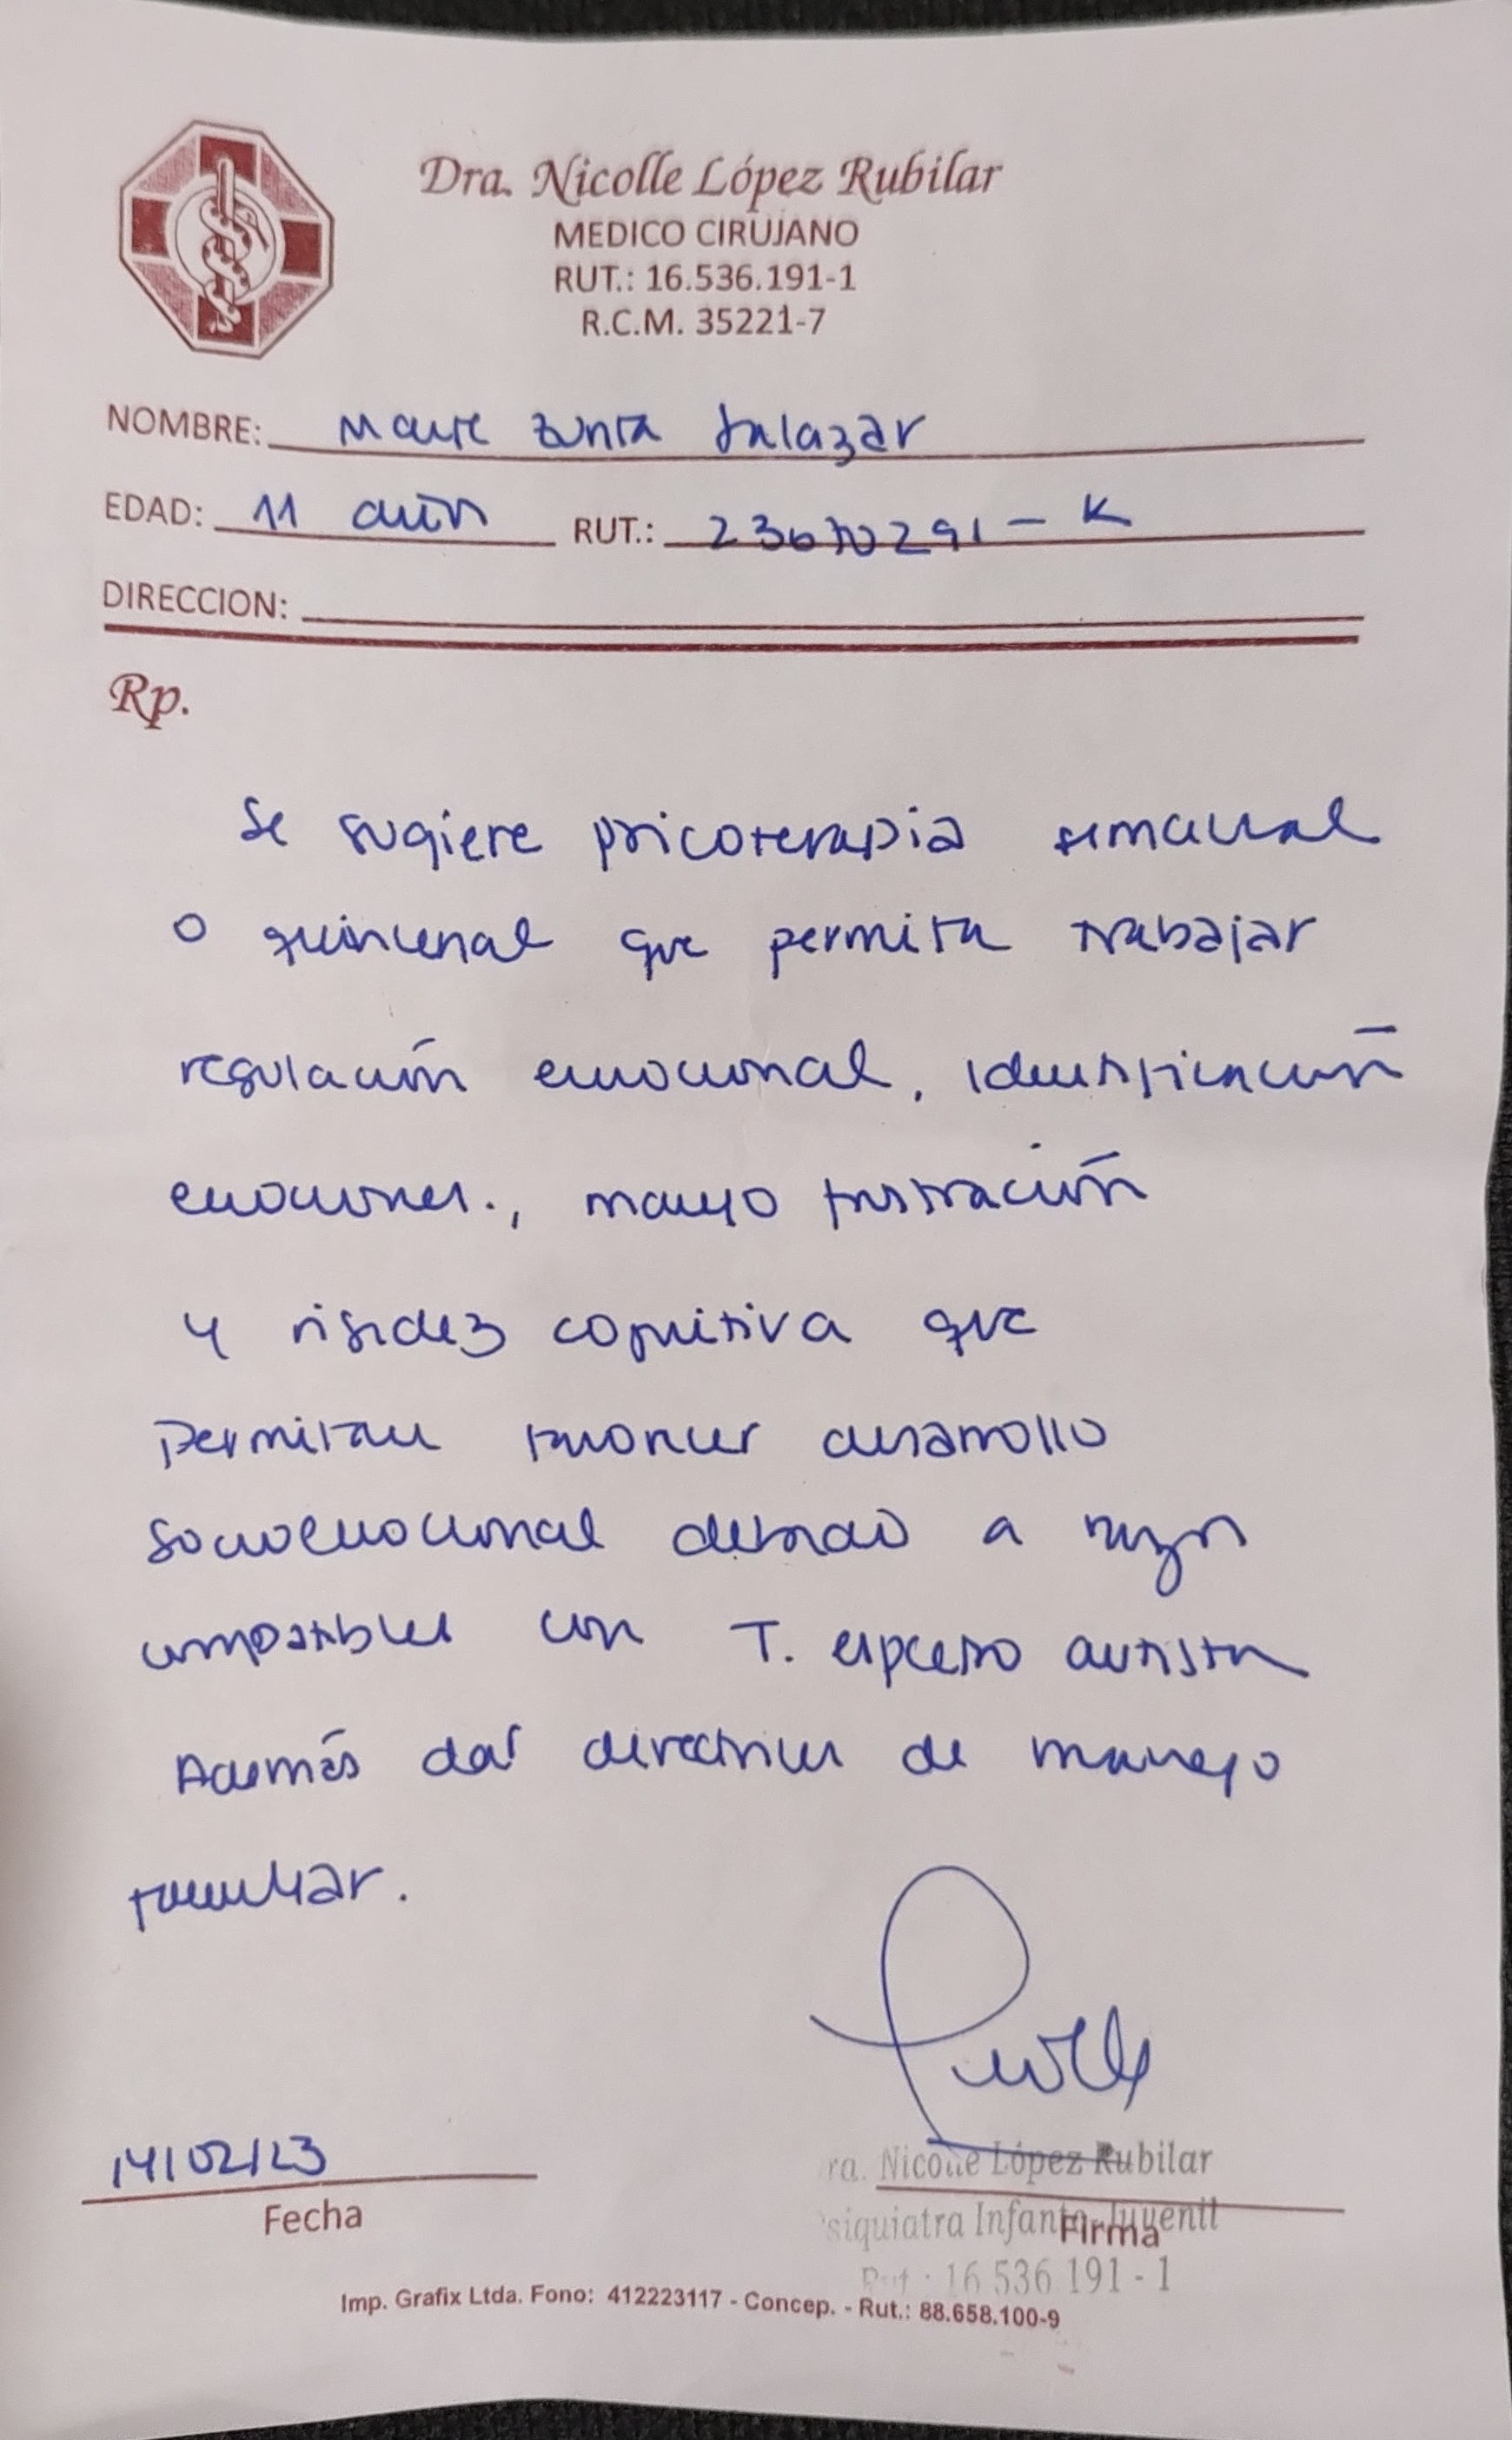 Dra. Nicolle López Rubilar
MEDICO CIRUJANO
RUT.: 16.536.191-1
R.C.M. 35221-7
NOMBRE: Salazar
EDAD: 11 años RUT.: 23670291-K
DIRECCION:
Rp.
Se sugiere psicoterapia semanal
o quincenal que permita trabajar
regulación emocional, identificación
emociones., manejo frustración
y rigidez cognitiva que
permitan favorecer desarrollo
socioemocional debido a rasgos
compatibles con T. espectro autista
Además dar directrices de manejo
familiar.
14/02/23
Fecha
Firma
ra. Nicolle López Rubilar
siquiatra Infanto Juvenil
Rut.: 16 536 191 - 1
Imp. Grafix Ltda. Fono: 412223117 - Concep. - Rut.: 88.658.100-9